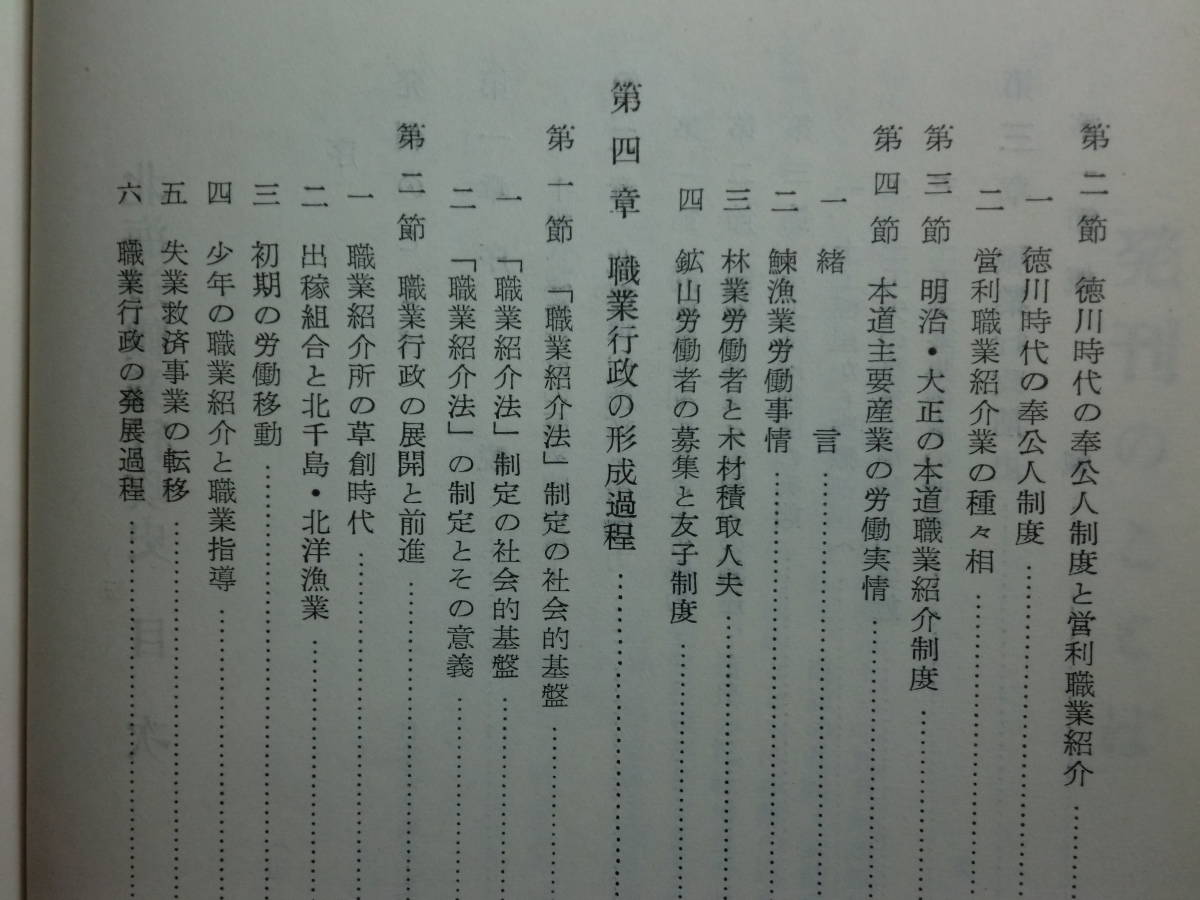 第二節　徳川時代の奉公人制度と営利職業紹介……
一　徳川時代の奉公人制度……
二　営利職業紹介業の種々相……
第三節　明治・大正の本道職業紹介制度……
第四節　本道主要産業の労働実情……
一　緒　　言……
二　鰊漁業労働事情……
三　林業労働者と木材積取人夫……
四　鉱山労働者の募集と友子制度……
第四章　職業行政の形成過程……
第一節　「職業紹介法」制定の社会的基盤……
一　「職業紹介法」制定の社会的基盤……
二　「職業紹介法」の制定とその意義……
第二節　職業行政の展開と前進……
一　職業紹介所の草創時代……
二　出稼組合と北千島・北洋漁業……
三　初期の労働移動……
四　少年の職業紹介と職業指導……
五　失業救済事業の転移……
六　職業行政の発展過程……